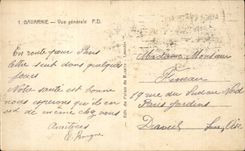 1. GAVARNIE — Vue générale P.D.
En route pour Paris
Etre suit dans quelques
jours
Notre santé est bonne
nous espérons qu'il en
est de même chez vous
Amitiés
Madame Monsieur
19 rue du
Paris Jardins
Draveil Seine, Oise